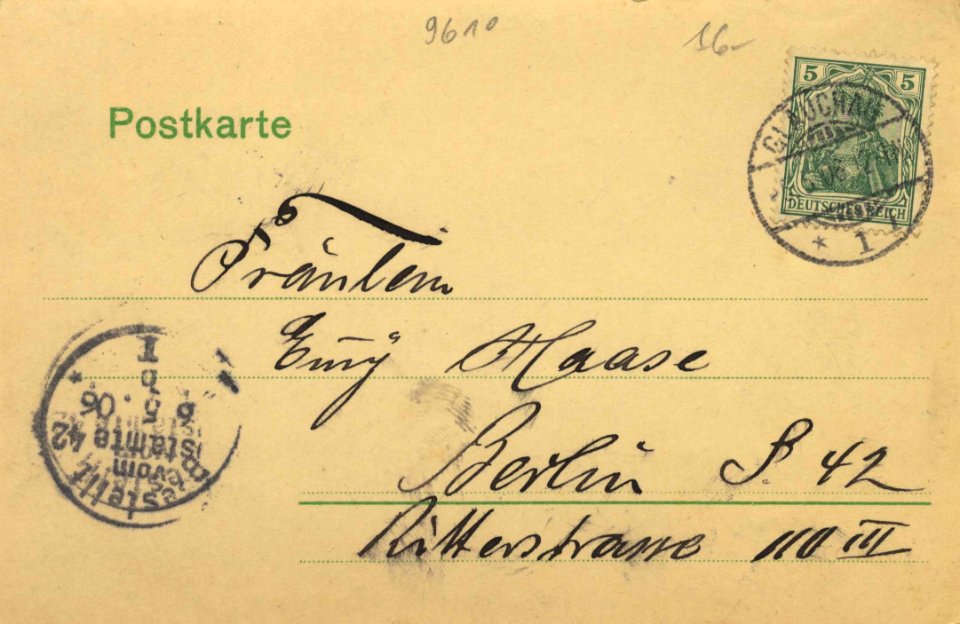 9610
16-
Postkarte
5 5
GLAUCHAU
DEUTSCHES REICH
* 1
Fräulein
Emÿ Haase
Berlin S. 42
Ritterstrasse 110 III
Bestellt
vom
Postamte 42
6 5 . 06